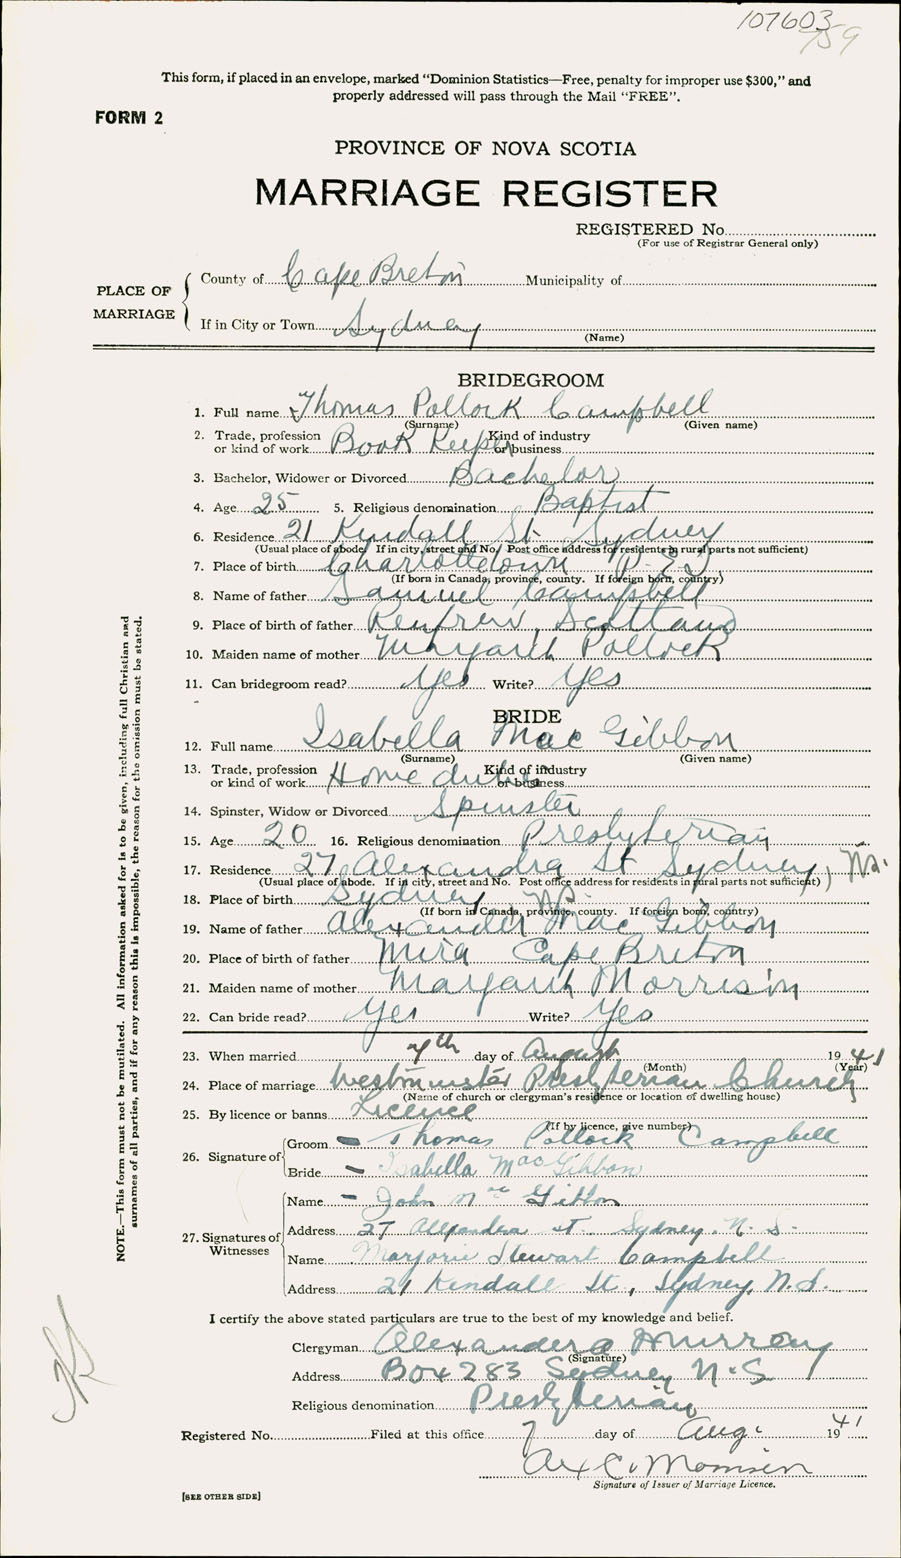 107603
759
This form, if placed in an envelope, marked “Dominion Statistics—Free, penalty for improper use $300,” and
properly addressed will pass through the Mail “FREE”.
FORM 2
PROVINCE OF NOVA SCOTIA
MARRIAGE REGISTER
REGISTERED No.
(For use of Registrar General only)
PLACE OF MARRIAGE
County of Cape Breton Municipality of
If in City or Town Sydney
(Name)
BRIDEGROOM
1. Full name Thomas Pollock Campbell
(Surname) (Given name)
2. Trade, profession or kind of work Book Keeper Kind of industry or business
3. Bachelor, Widower or Divorced Bachelor
4. Age 25 5. Religious denomination Baptist
6. Residence 21 Kendall St Sydney
(Usual place of abode. If in city, street and No. Post office address for residents in rural parts not sufficient)
7. Place of birth Charlottetown P.E.I.
(If born in Canada, province, county. If foreign born, country)
8. Name of father Samuel Campbell
9. Place of birth of father Renfrew, Scotland
10. Maiden name of mother Margaret Pollock
11. Can bridegroom read? Yes Write? Yes
BRIDE
12. Full name Isabella Mac Gibbon
(Surname) (Given name)
13. Trade, profession or kind of work Home duties Kind of industry or business
14. Spinster, Widow or Divorced Spinster
15. Age 20 16. Religious denomination Presbyterian
17. Residence 27 Alexandra St Sydney, N.S.
(Usual place of abode. If in city, street and No. Post office address for residents in rural parts not sufficient)
18. Place of birth Sydney N.S.
(If born in Canada, province, county. If foreign born, country)
19. Name of father Alexander Mac Gibbon
20. Place of birth of father Mira Cape Breton
21. Maiden name of mother Margaret Morrison
22. Can bride read? Yes Write? Yes
23. When married 7th day of August 1941
(Month) (Year)
24. Place of marriage Westminster Presbyterian Church
(Name of church or clergyman's residence or location of dwelling house)
25. By licence or banns Licence
(If by licence, give number)
26. Signature of
Groom Thomas Pollock Campbell
Bride Isabella MacGibbon
27. Signatures of Witnesses
Name John MacGibbon
Address 27 Alexandra St. Sydney, N.S.
Name Marjorie Stewart Campbell
Address 21 Kendall St., Sydney, N.S.
I certify the above stated particulars are true to the best of my knowledge and belief.
Clergyman Alexander A Murray
(Signature)
Address Box 283 Sydney N.S
Religious denomination Presbyterian
Registered No. Filed at this office 7 day of Aug. 1941
Alex C. Morrison
Signature of Issuer of Marriage Licence.
[SEE OTHER SIDE]
NOTE.—This form must not be mutilated. All information asked for is to be given, including full Christian and
surnames of all parties, and if for any reason this is impossible, the reason for the omission must be stated.